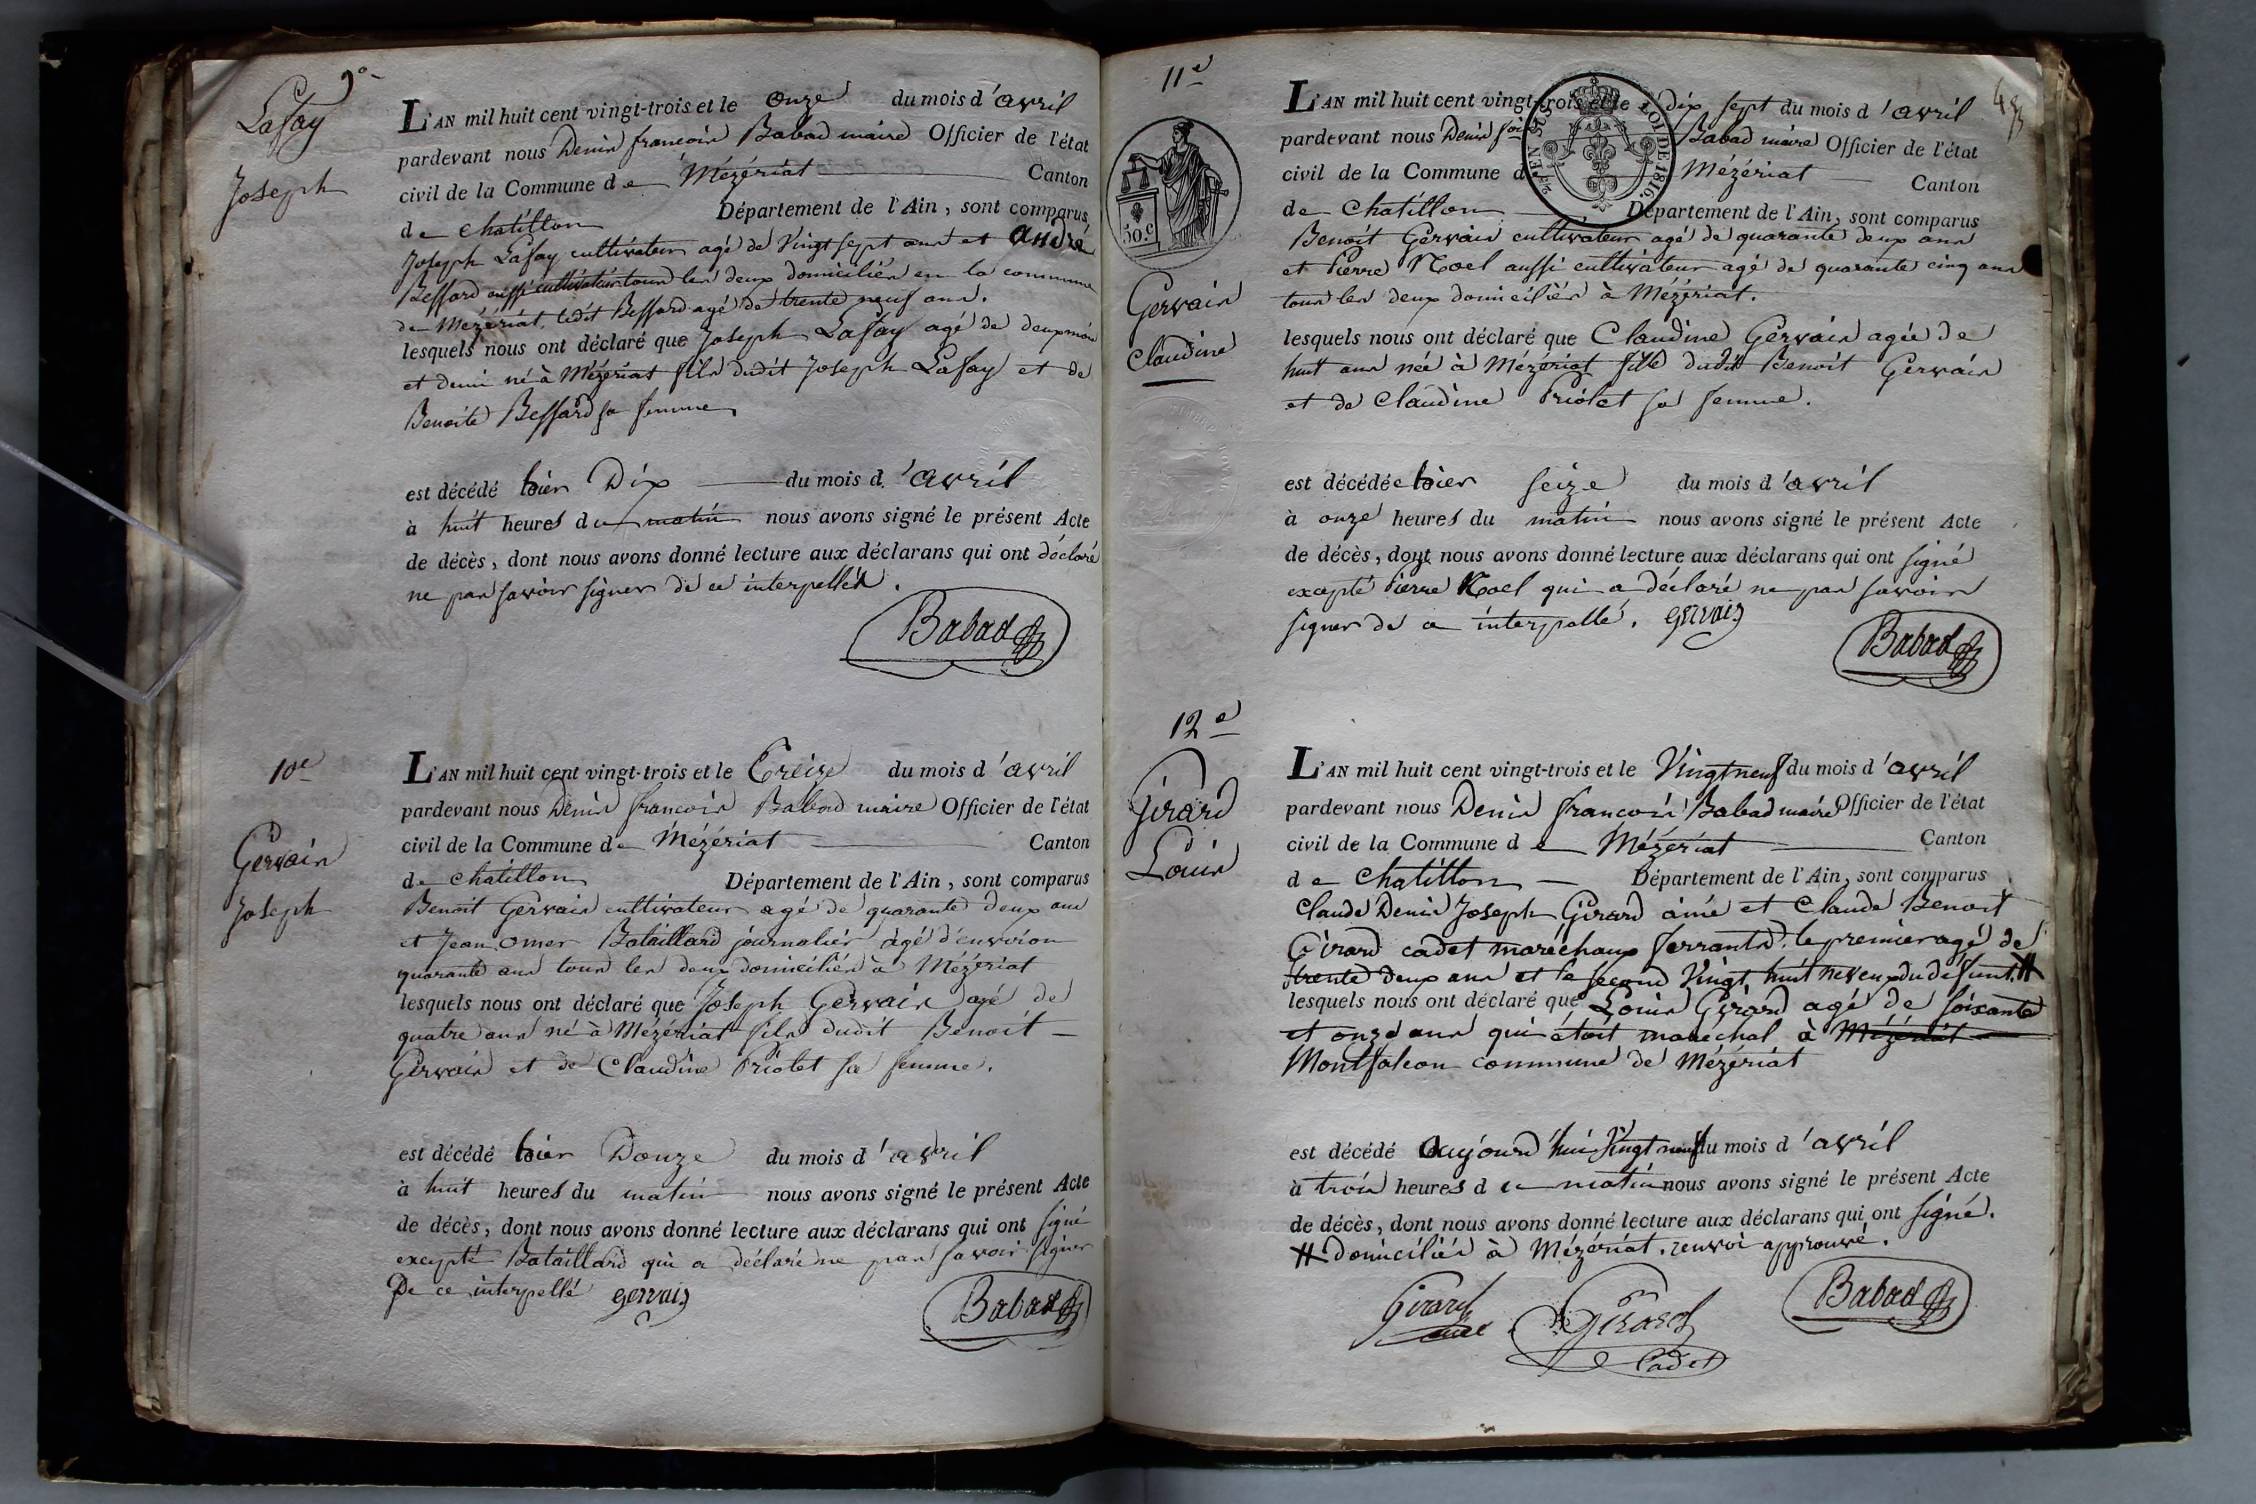 9e
Lafay
Joseph
L'AN mil huit cent vingt-trois et le onze du mois d'avril
pardevant nous Denis françois Babad maire Officier de l'état
civil de la Commune de Mézériat Canton
de chatillon Département de l'Ain, sont comparus
Joseph Lafay cultivateur agé de Vingt sept ans et André
Beffard aussi cultivateur tous les deux domiciliés en la commune
de Mézériat, ledit Beffard agé de trente neuf ans.
lesquels nous ont déclaré que Joseph Lafay agé de deux mois
et demi né à Mézériat fils dudit Joseph Lafay et de
Benoite Beffard sa femme
est décédé hier Dix du mois d'avril
à huit heures du matin nous avons signé le présent Acte
de décès, dont nous avons donné lecture aux déclarans qui ont déclaré
ne pas savoir signer de ce interpellés.
Babad
10e
Gervais
Joseph
L'AN mil huit cent vingt-trois et le Treize du mois d'avril
pardevant nous Denis françois Babad maire Officier de l'état
civil de la Commune de Mézériat Canton
de chatillon Département de l'Ain, sont comparus
Benoit Gervais cultivateur agé de quarante deux ans
et Jean Omer Bataillard journalier agé d'environ
quarante ans tous les deux domiciliés à Mézériat
lesquels nous ont déclaré que Joseph Gervais agé de
quatre ans né à Mézériat fils dudit Benoit
Gervais et de Claudine Priolet sa femme.
est décédé hier Douze du mois d'avril
à huit heures du matin nous avons signé le présent Acte
de décès, dont nous avons donné lecture aux déclarans qui ont signé
excepté Bataillard qui a déclaré ne pas savoir signer
De ce interpellé gervais
Babad
11e
50.c
Gervais
Claudine
L'AN mil huit cent vingt-trois et le dix sept du mois d'avril
EN SUS LOI DE 1816.
pardevant nous Denis Babad maire Officier de l'état
civil de la Commune d Mézériat Canton
de Chatillon Département de l'Ain, sont comparus
Benoit Gervais cultivateur agé de quarante deux ans
et Pierre Noel aussi cultivateur agé de quarante cinq ans
tous les deux domiciliés à Mézériat.
lesquels nous ont déclaré que Claudine Gervais agée de
huit ans née à Mézériat fille dudit Benoit Gervais
et de Claudine Priolet sa femme.
est décédée hier seize du mois d'avril
à onze heures du matin nous avons signé le présent Acte
de décès, dont nous avons donné lecture aux déclarans qui ont signé
excepté Pierre Noel qui a déclaré ne pas savoir
signer de ce interpellé. gervais
Babad
12e
Girard
Louis
L'AN mil huit cent vingt-trois et le Vingt neuf du mois d'avril
pardevant nous Denis françois Babad maire Officier de l'état
civil de la Commune de Mézériat Canton
de Chatillon Département de l'Ain, sont comparus
Claude Denis Joseph Girard ainé et Claude Benoit
Girard cadet maréchaux ferrants, le premier agé de
trente deux ans et le second Vingt huit neveux du défunt #
lesquels nous ont déclaré que Louis Girard agé de soixante
et onze ans qui étoit maréchal à Mézériat
Montfalcon commune de Mézériat
est décédé Aujourd'hui Vingt neuf du mois d'avril
à trois heures du matin nous avons signé le présent Acte
de décès, dont nous avons donné lecture aux déclarans qui ont signé.
# domiciliés à Mézériat. renvoi approuvé.
Girard ainé Girard Cadet Babad